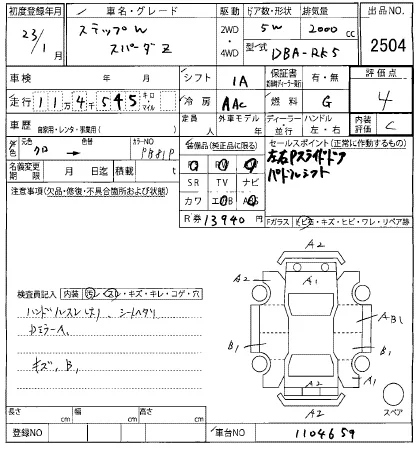 初度登録年月 車名・グレード 駆動 ドア数・形状 排気量 出品NO.
23/1月 ステップW スパーダZ 2WD・4WD 5W 2000cc 2504
型式 DBA-RK5
車検 年 月 シフト IA 保証書 有・無 評価点
走行 11万4千545 キロ・マイル 冷房 AAC 燃料 G 4
車歴 自家用・レンタ・事業用( ) 定員 人 外車モデル 年 ディーラー・並行 ハンドル 左・右 内装評価 C
色 元色 クロ → 色替 カラーNO
装備品(純正品に限る) セールスポイント(正常に作動するもの)
左右Pスライドドア
パドルシフト
名義変更期限 月 日迄 積載 t
SR TV ナビ
注意事項(欠品・修復・不具合箇所および状態)
カワ エAB AW
R券 13940円
Fガラス トビ石・キズ・ヒビ・ワレ・リペア跡
A2
A2 A1
A1 AB1
B1 B1
A1
A2 A2
スペア
検査員記入 内装 汚・スレ・キズ・キレ・コゲ・穴
ハンドルスレ 、シートヘタリ
DミラーA、
キズ、B、
長さ cm 幅 cm 高さ cm
登録NO 車台NO 1104659